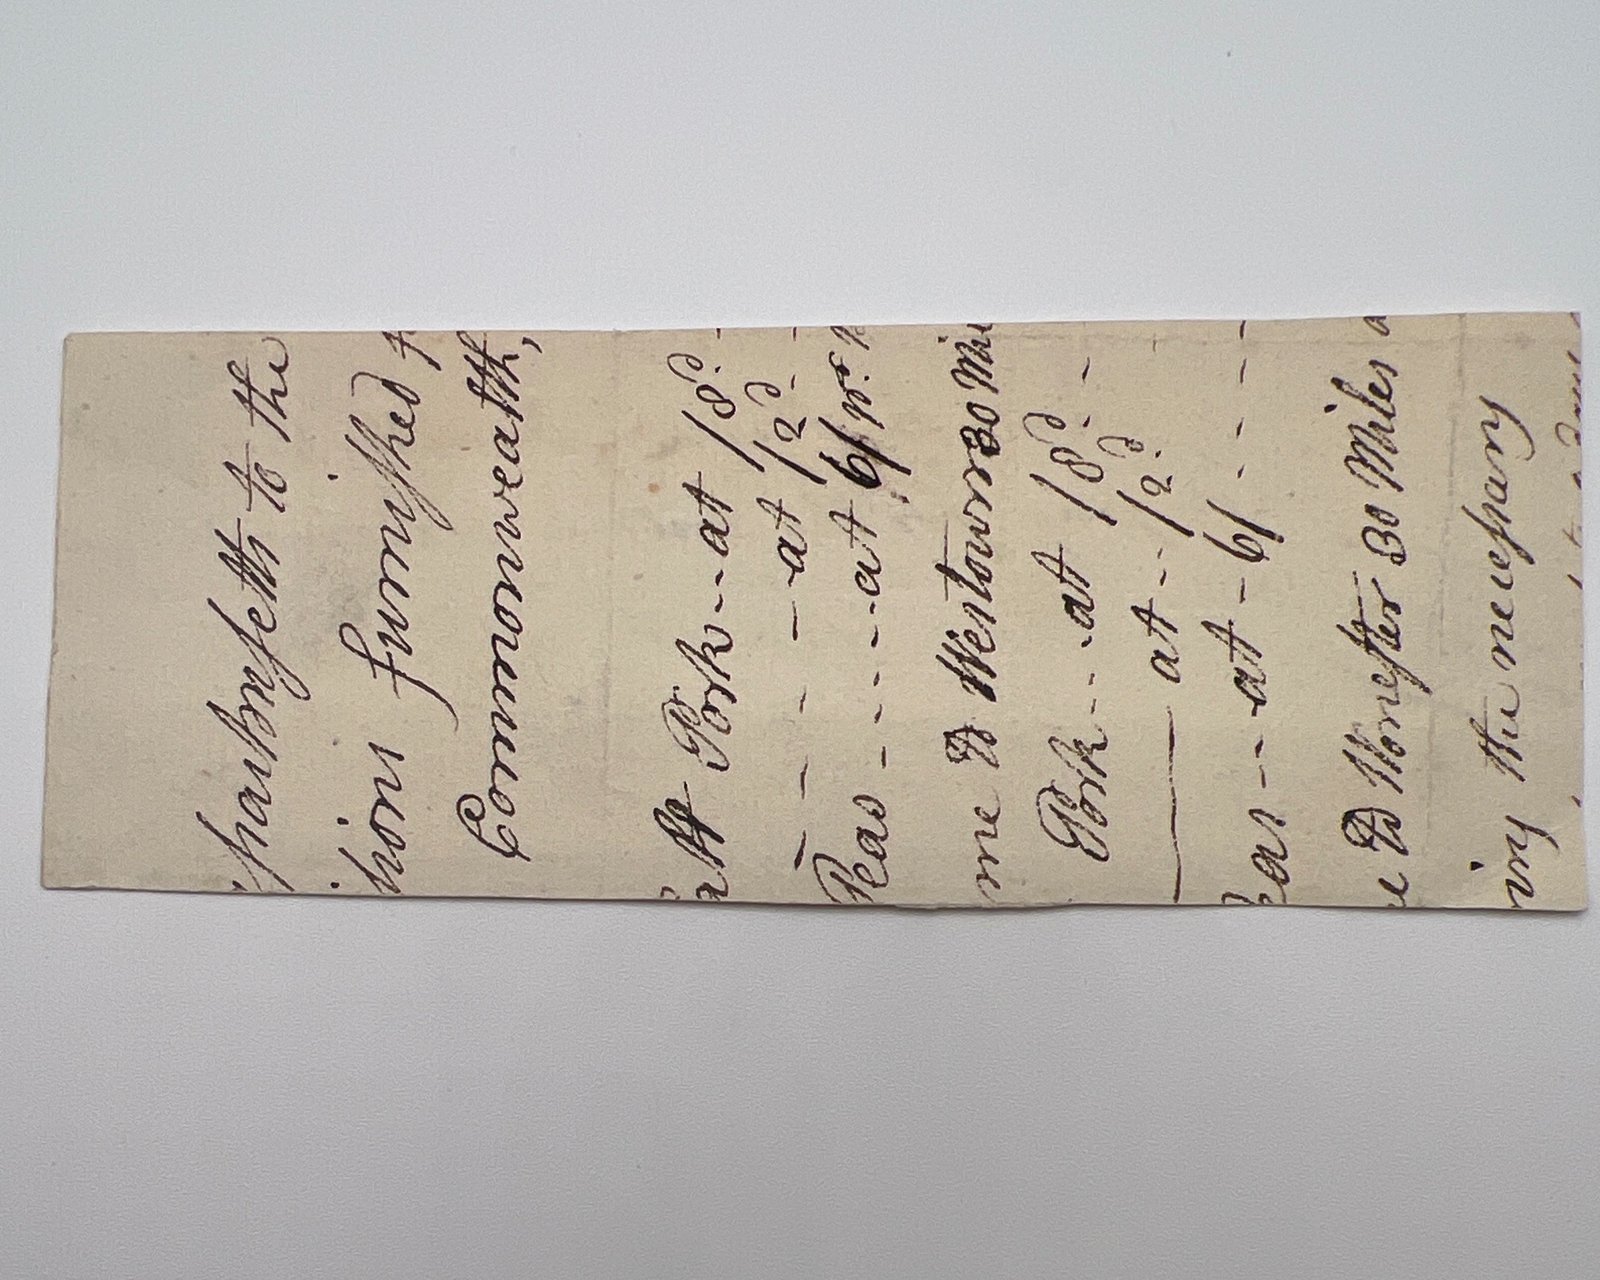 ſsachusſetts to the
sions furnished f
Commonweatth,
alt Pork -- at /8d. -
- - - - at /2d. -
Peas - - - - at 6/ pr.
me Do Westown 30 Mil
Pork - - - at /8d. -
—— at -- /2d.
Peas - - - at - 6/ - - -
e Do Worcester 30 Miles a
ing the necessary